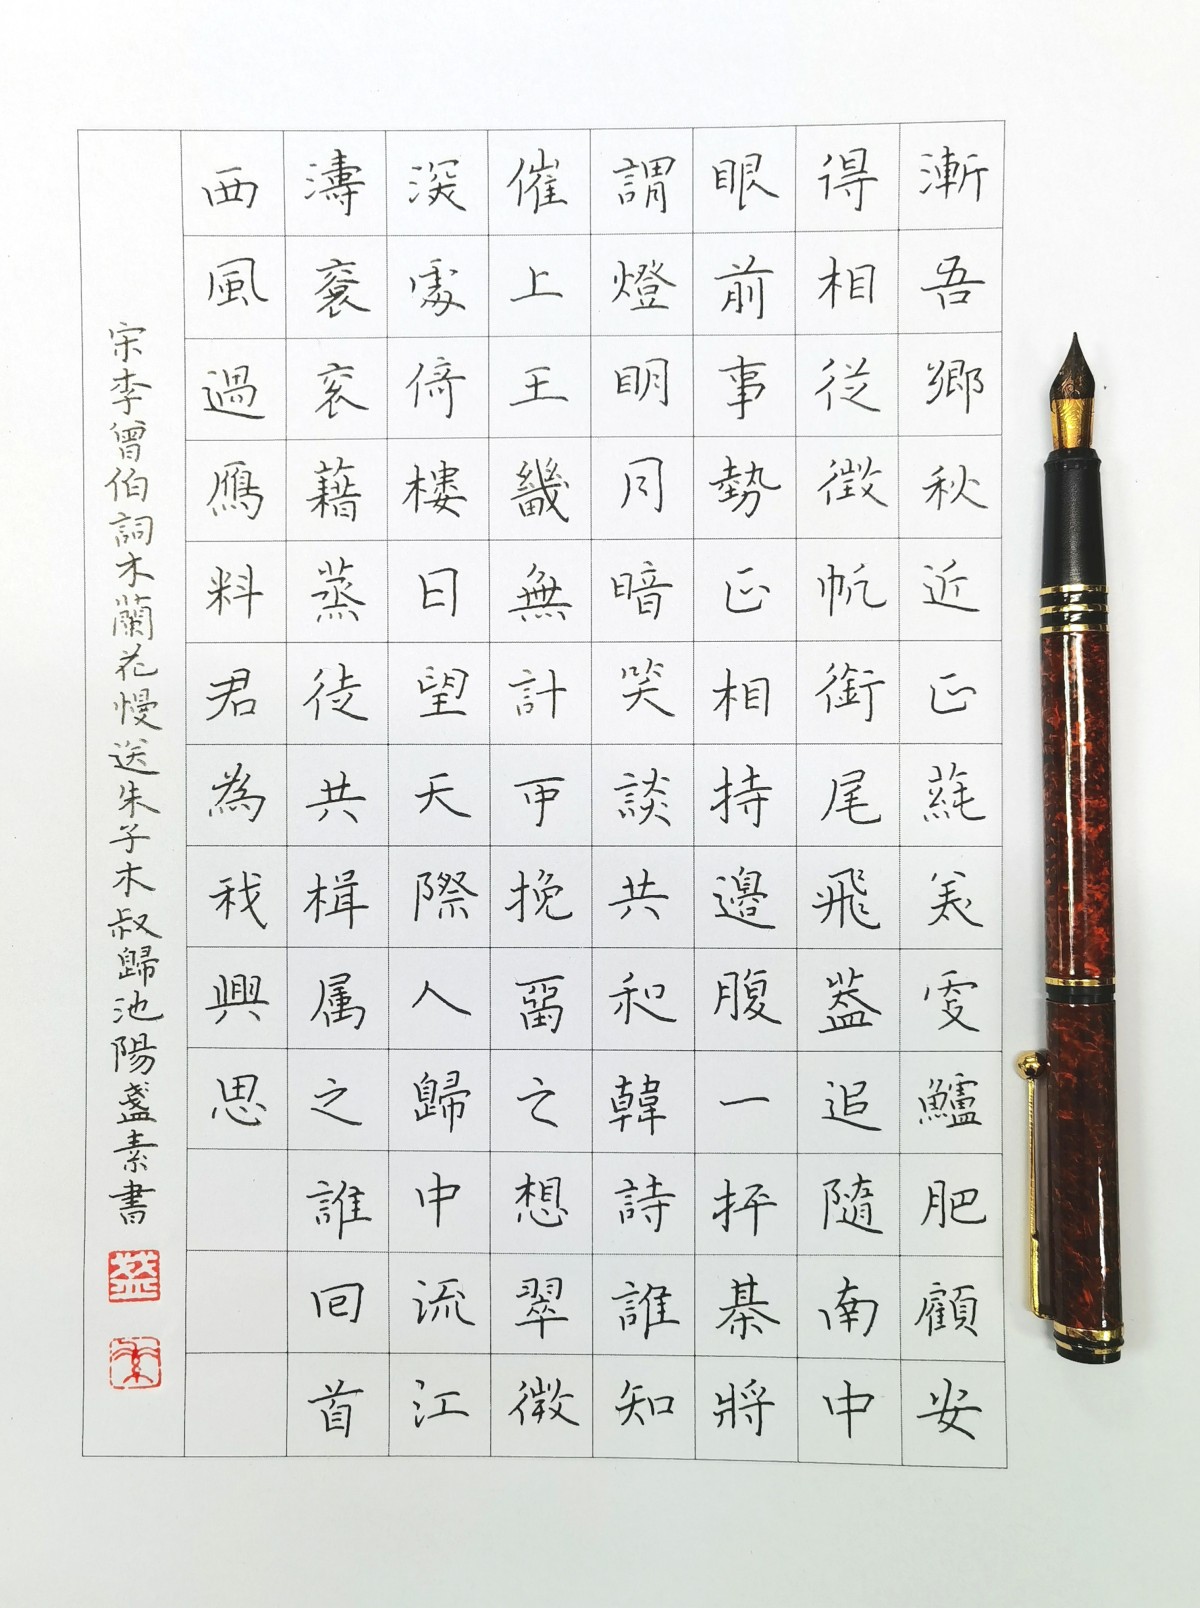 漸吾鄉秋近正蒓羙鱸肥顧安
得相從徵帆銜尾飛蓋追隨南中
眼前事勢正相持邊腹一抨棊將
謂燈明月暗笑談共和韓詩誰知
催上王畿無計可挽留之想翠微
深處倚樓日望天際人歸中流江
濤袞袞藉蒸徒共楫属之誰回首
西風過鴈料君為我興思
宋李曾伯詞木蘭花慢送朱子木叔歸池陽盞素書